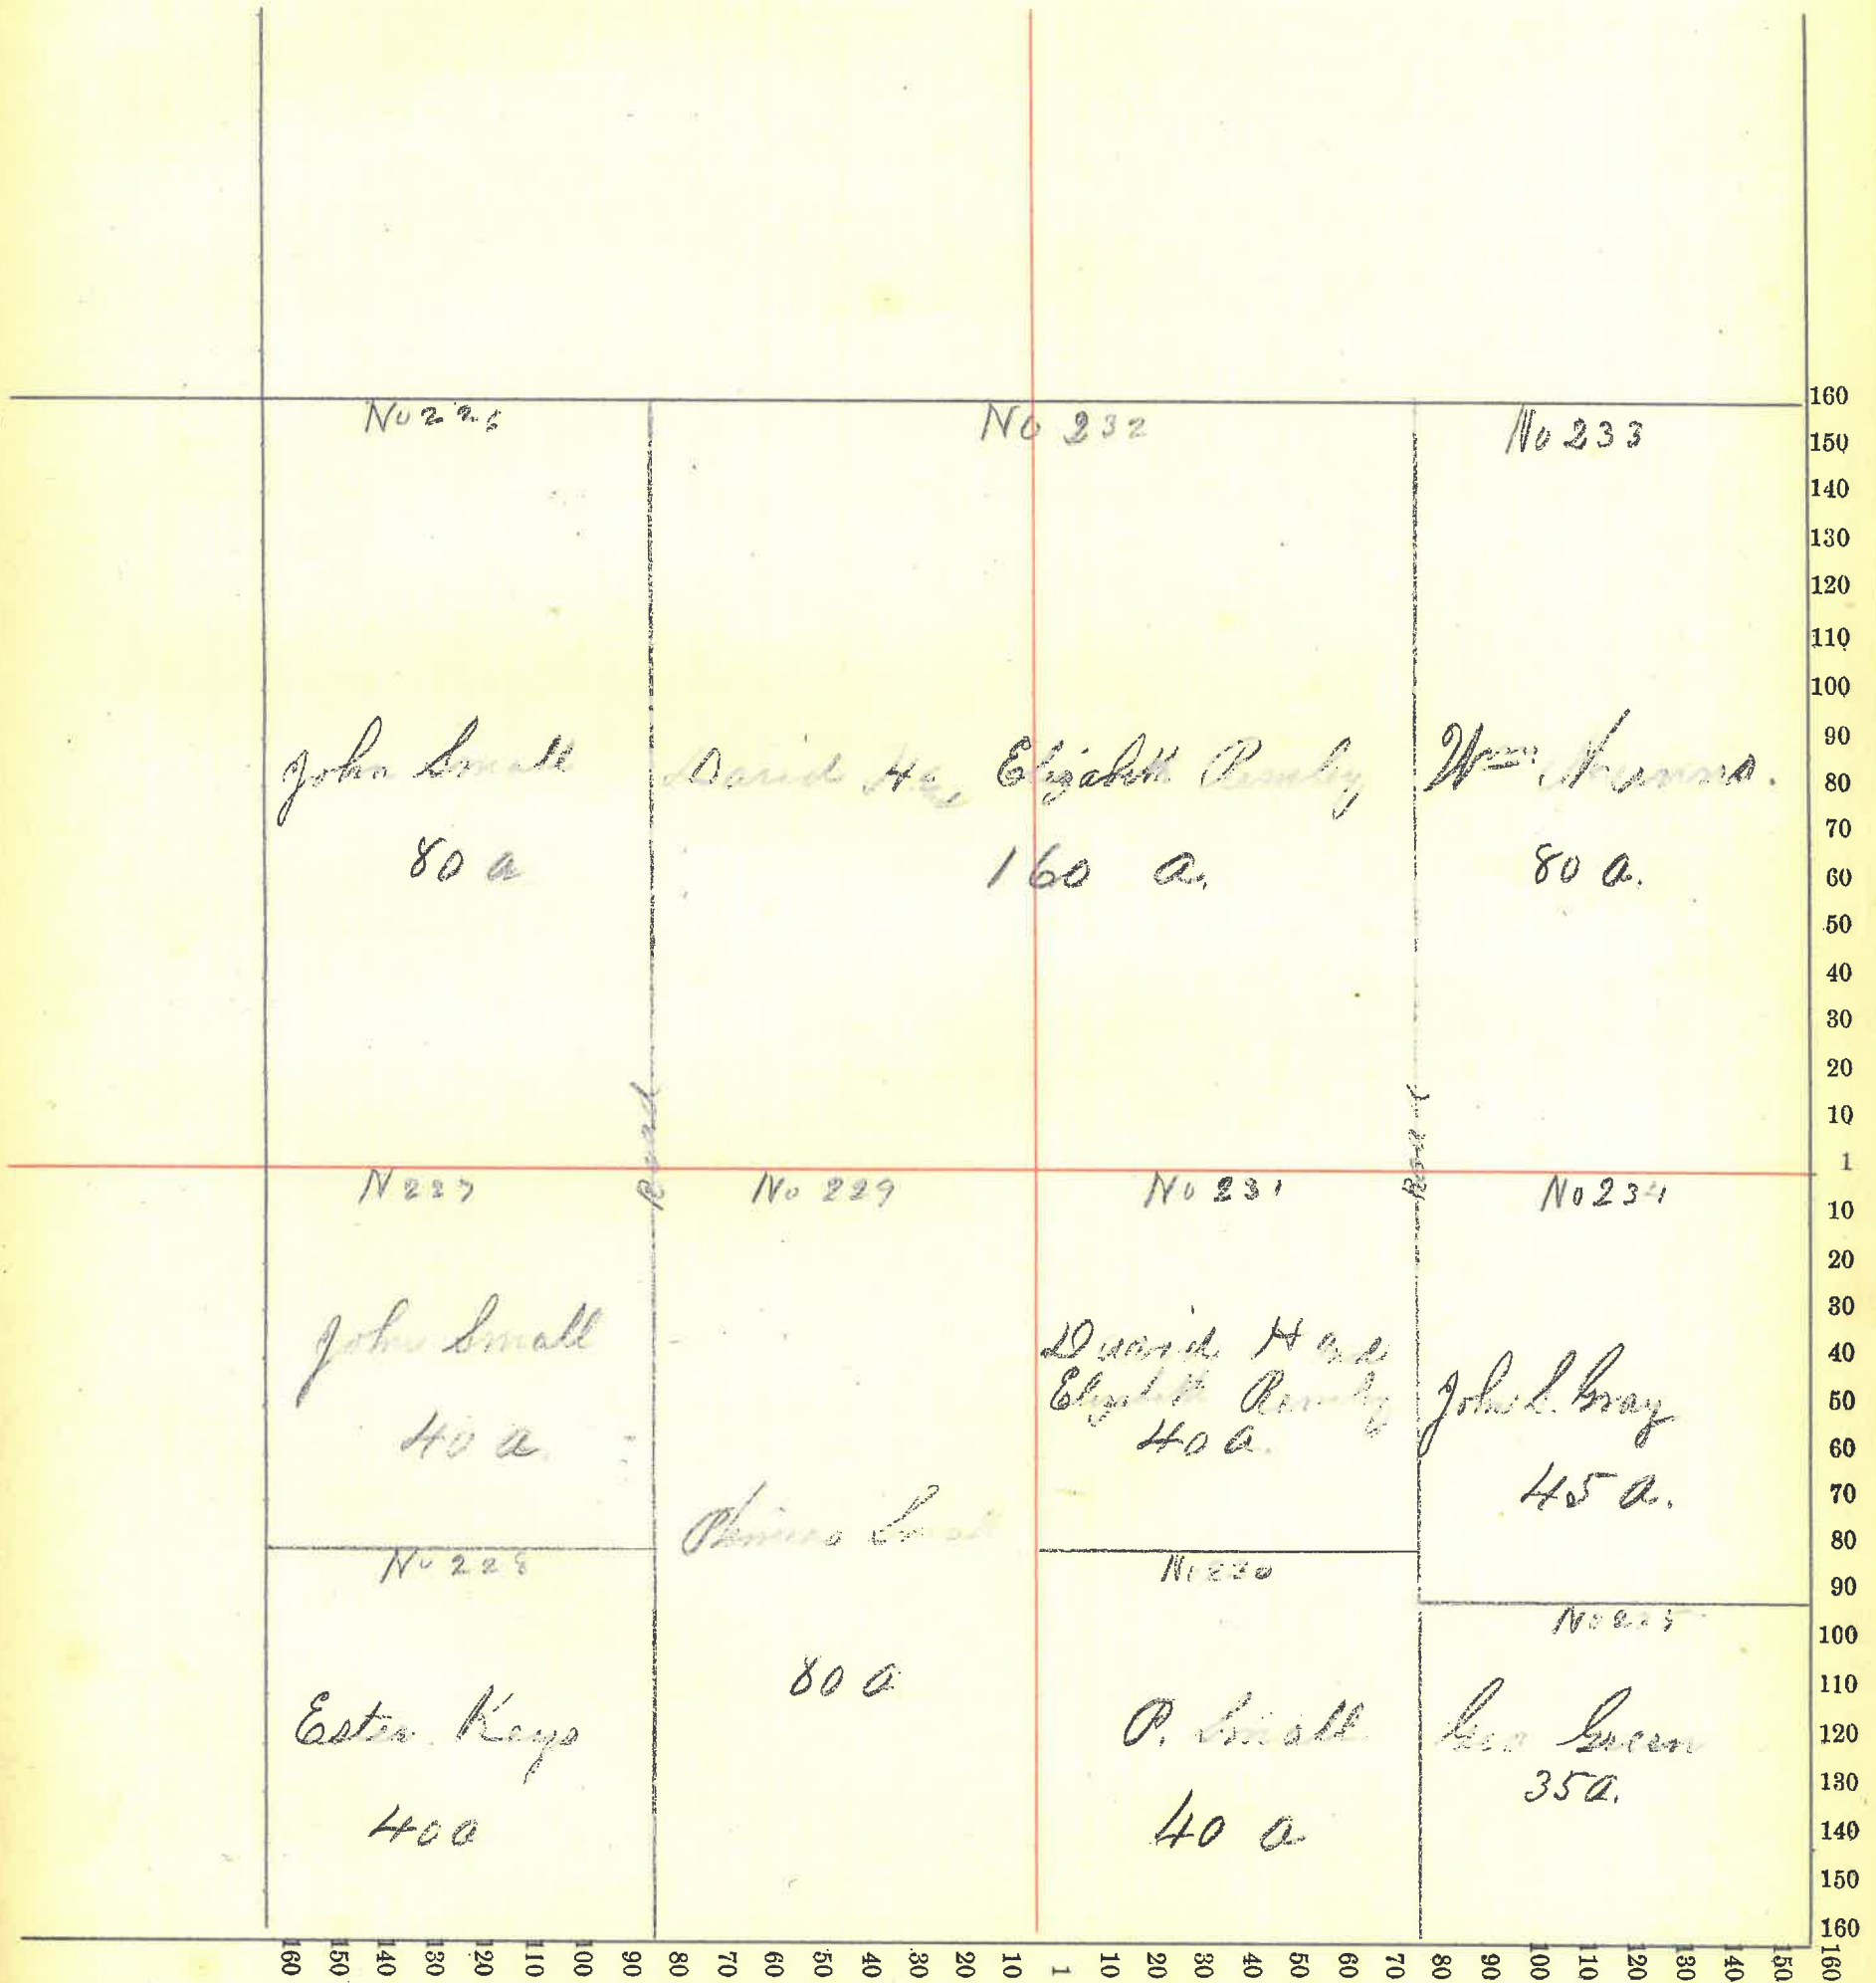 No 226
No 232
No 233
John Small
80 a
David H &
Elizabeth Remley
160 a.
Wm
80 a.
Road
Road
N 227
No 229
No 231
No 234
John Small
40 a.
David H and
Elizabeth Remley
40 a.
John L. Gray
45 a.
Small
80 a
No 228
Ester Keys
40 a
No 230
P. Small
40 a
No 235
Geo Green
35 a.
160
150
140
130
120
110
100
90
80
70
60
50
40
30
20
10
1
10
20
30
40
50
60
70
80
90
100
110
120
130
140
150
160
160 150 140 130 120 110 100 90 80 70 60 50 40 30 20 10 1 10 20 30 40 50 60 70 80 90 100 110 120 130 140 150 160